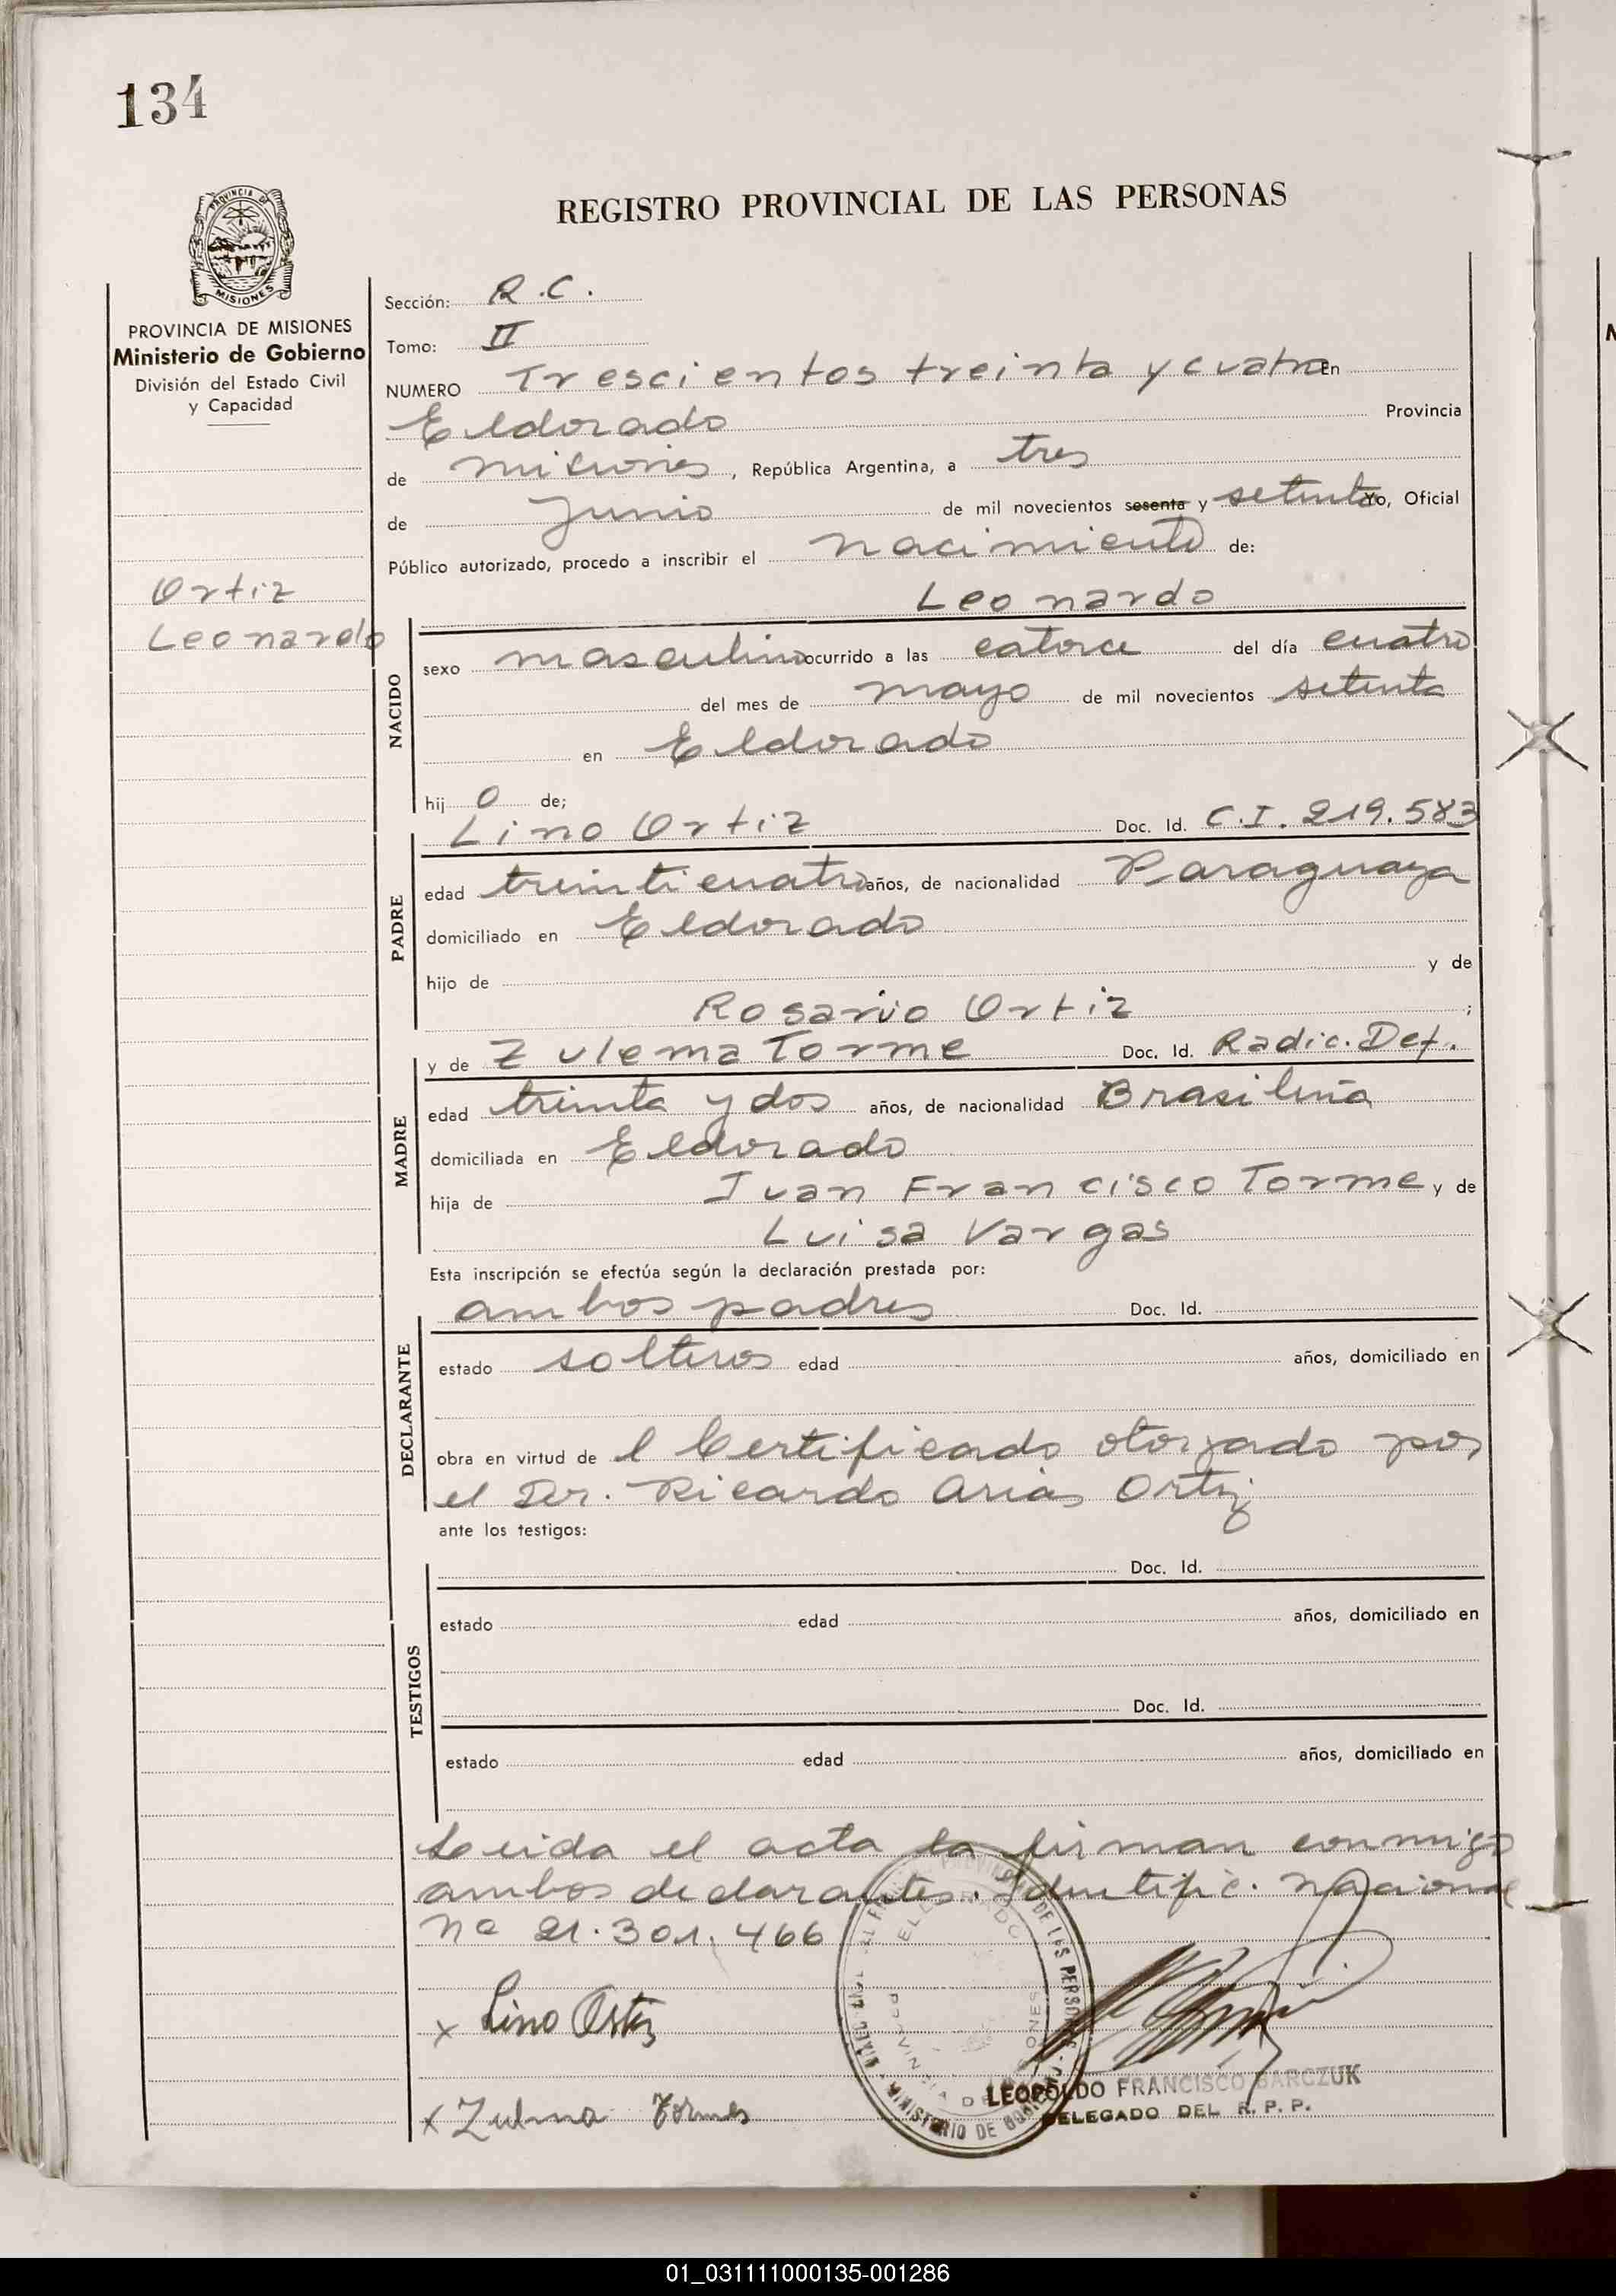 134
PROVINCIA DE
MISIONES
REGISTRO PROVINCIAL DE LAS PERSONAS
PROVINCIA DE MISIONES
Ministerio de Gobierno
División del Estado Civil
y Capacidad
Ortiz
Leonardo
Sección: R.C.
Tomo: II
NUMERO Trescientos treinta y cuatro En
Eldorado Provincia
de misiones, República Argentina, a tres
de Junio de mil novecientos sesenta y setenta Yo, Oficial
Público autorizado, procedo a inscribir el nacimiento de:
Leonardo
NACIDO
sexo masculino ocurrido a las catorce del día cuatro
del mes de mayo de mil novecientos setenta
en Eldorado
hij o de;
Lino Ortiz Doc. Id. C.I. 219.583
PADRE
edad treinticuatro años, de nacionalidad Paraguaya
domiciliado en Eldorado
hijo de y de
Rosario Ortiz ;
y de Zulema Torme Doc. Id. Radic. Def.
MADRE
edad treinta y dos años, de nacionalidad Brasileña
domiciliada en Eldorado
hija de Juan Francisco Torme y de
Luisa Vargas
Esta inscripción se efectúa según la declaración prestada por:
ambos padres Doc. Id.
DECLARANTE
estado solteros edad años, domiciliado en
obra en virtud de l Certificado otorgado por
el Dr. Ricardo Arias Ortiz
ante los testigos:
Doc. Id.
TESTIGOS
estado edad años, domiciliado en
Doc. Id.
estado edad años, domiciliado en
Leida el acta la firman conmigo
ambos declarantes. Identific. nacional
Nº 21.301.466
x Lino Ortiz
x Zulma Tormes
ELDORADO
PROVINCIA DE MISIONES
MINISTERIO DE GOBIERNO
LEOPOLDO FRANCISCO BARCZUK
DELEGADO DEL R. P. P.
01_031111000135-001286